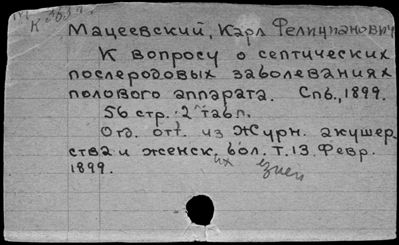 Мацеевский, Карл Фелицианович
К вопросу о септических
послеродовых заболеваниях
полового аппарата. Спб., 1899.
56 стр. 2 табл.
Отд. отт. из Журн. акушер
ства и женск. бол. Т. 13. Февр.
1899.